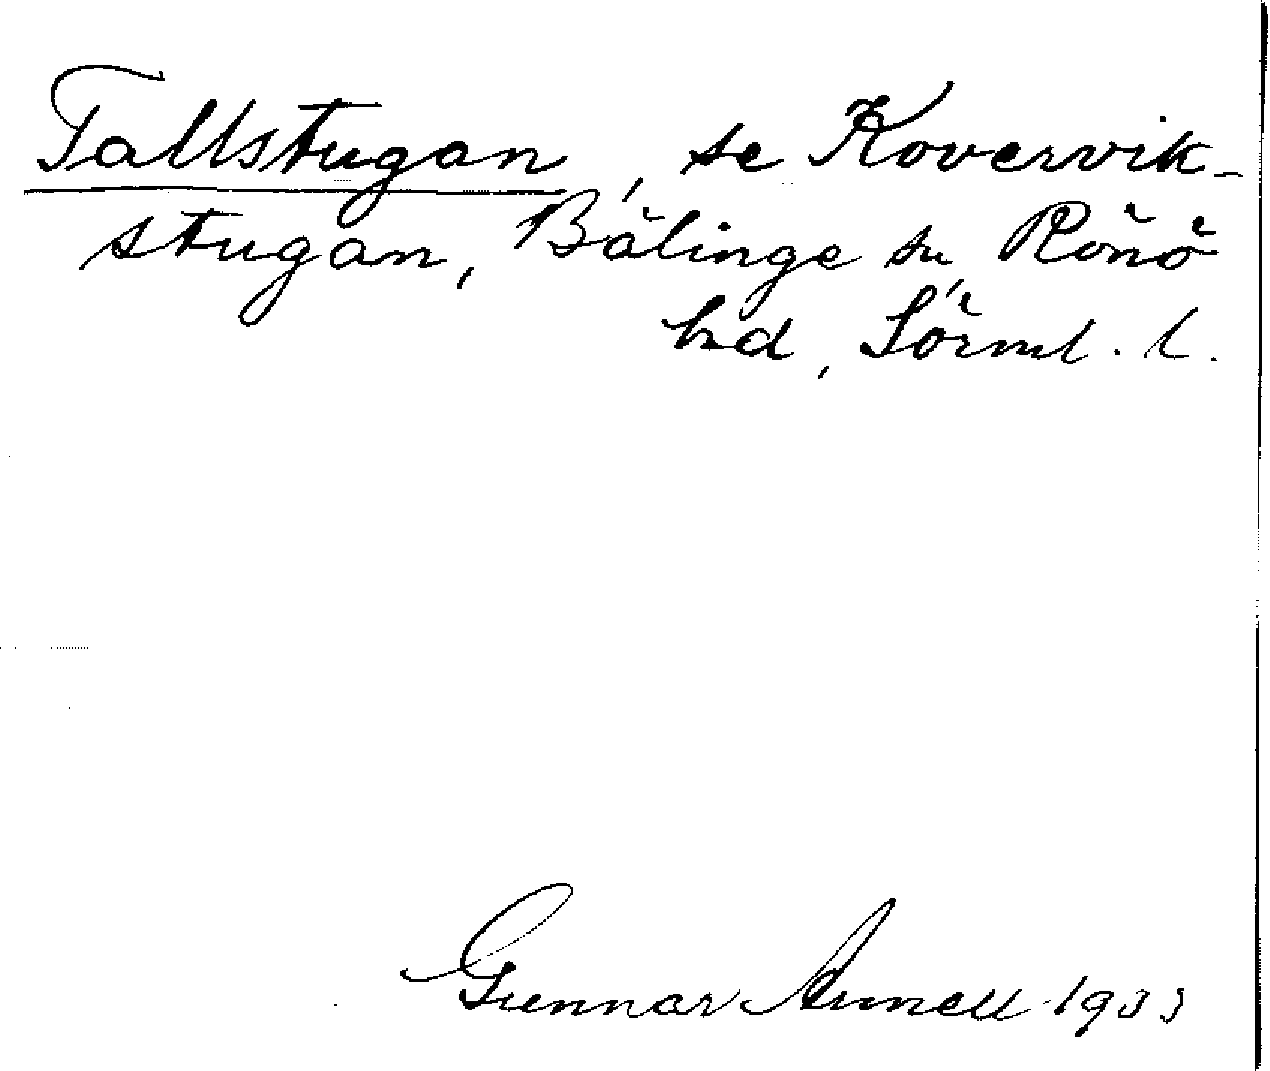 Tallstugan, se Kovervik-
stugan, Bälinge sn, Rönö
hd, Sörml. l.
Gunnar Annell 1933